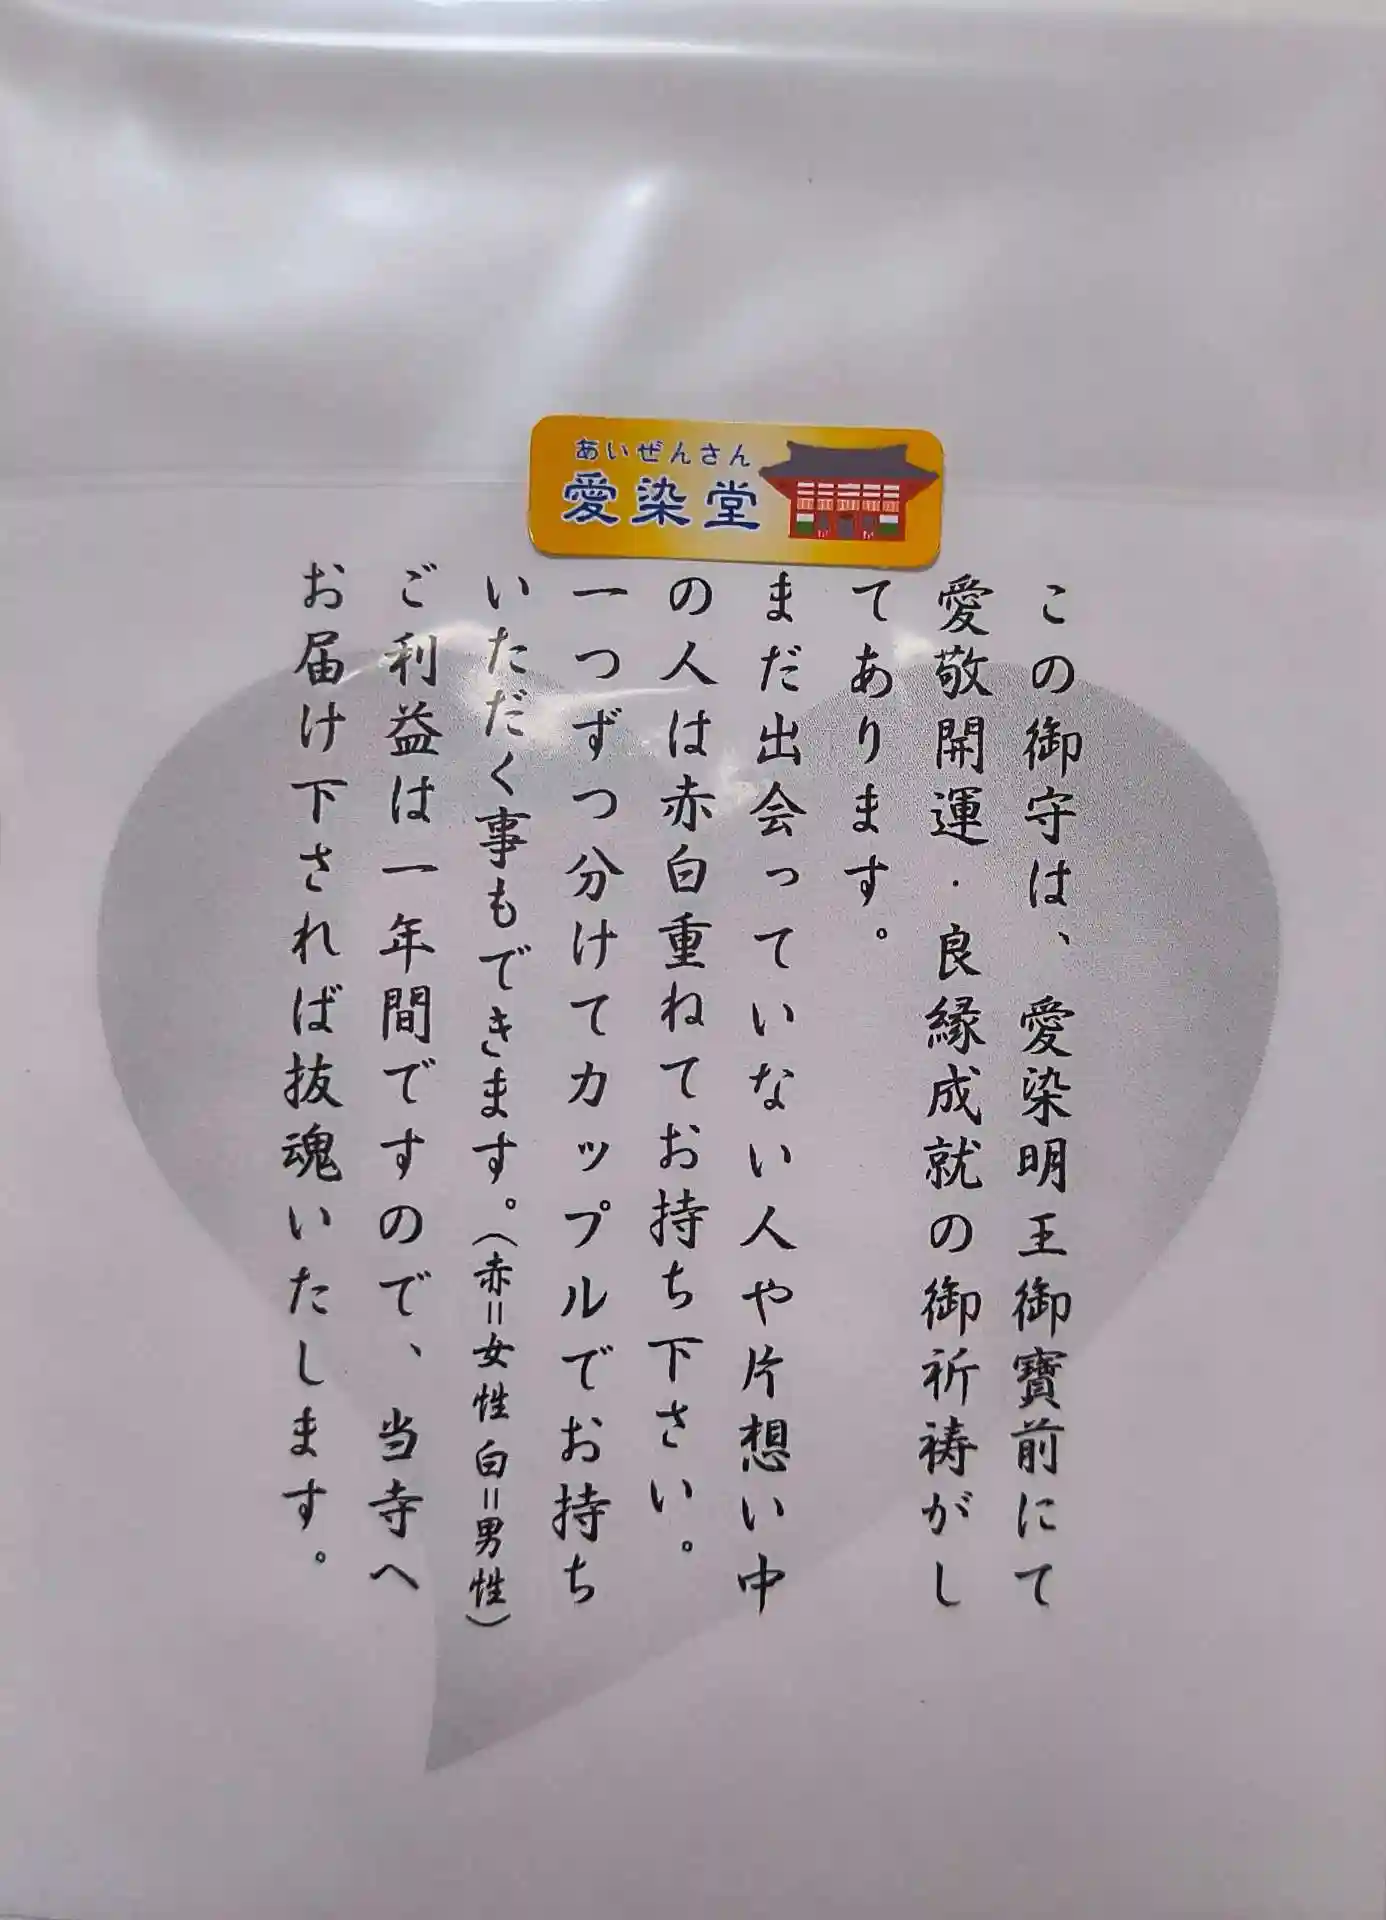 あいぜんさん
愛染堂
この御守は、愛染明王御寶前にて
愛敬開運・良縁成就の御祈祷がし
てあります。
まだ出会っていない人や片想い中
の人は赤白重ねてお持ち下さい。
一つずつ分けてカップルでお持ち
いただく事もできます。(赤=女性 白=男性)
ご利益は一年間ですので、当寺へ
お届け下されば抜魂いたします。